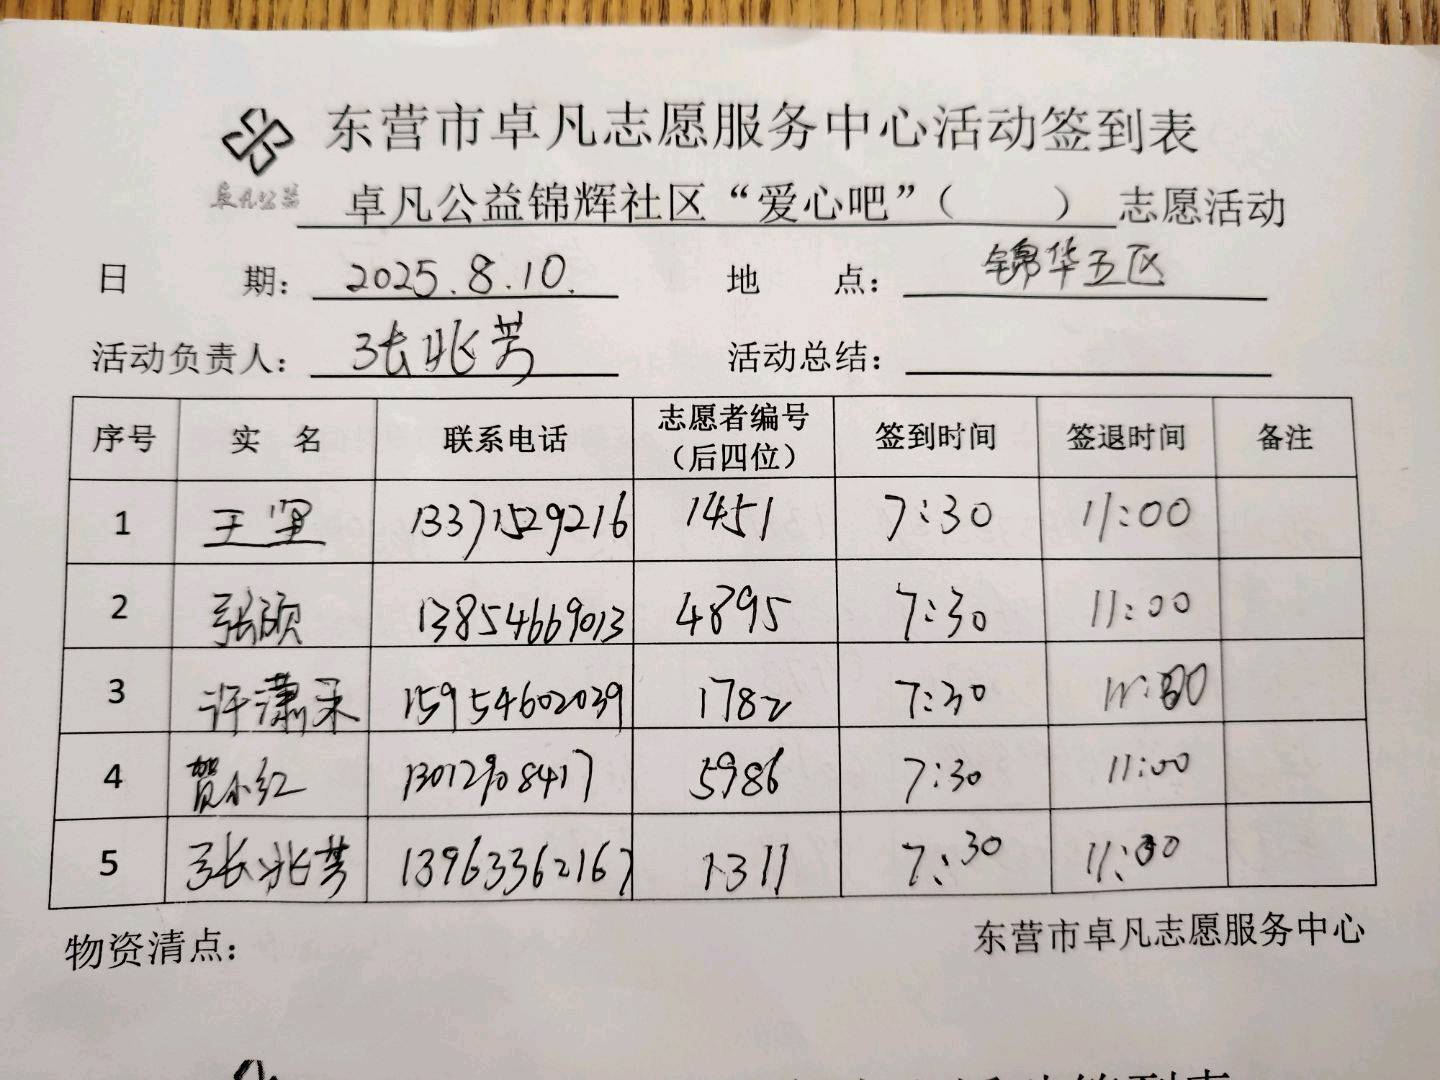 东营市卓凡志愿服务中心活动签到表
卓凡公益
卓凡公益锦辉社区“爱心吧”（　　）志愿活动
日　期： 2025.8.10. 地　点： 锦华五区
活动负责人： 张兆芳 活动总结：
序号 实 名 联系电话 志愿者编号（后四位） 签到时间 签退时间 备注
1 王坚 13371529216 1451 7:30 11:00
2 张硕 13854669013 4895 7:30 11:00
3 许潇采 15954602039 1782 7:30 11:00
4 贺小红 13012908417 5986 7:30 11:00
5 张兆芳 13963362167 1311 7:30 11:00
物资清点： 东营市卓凡志愿服务中心